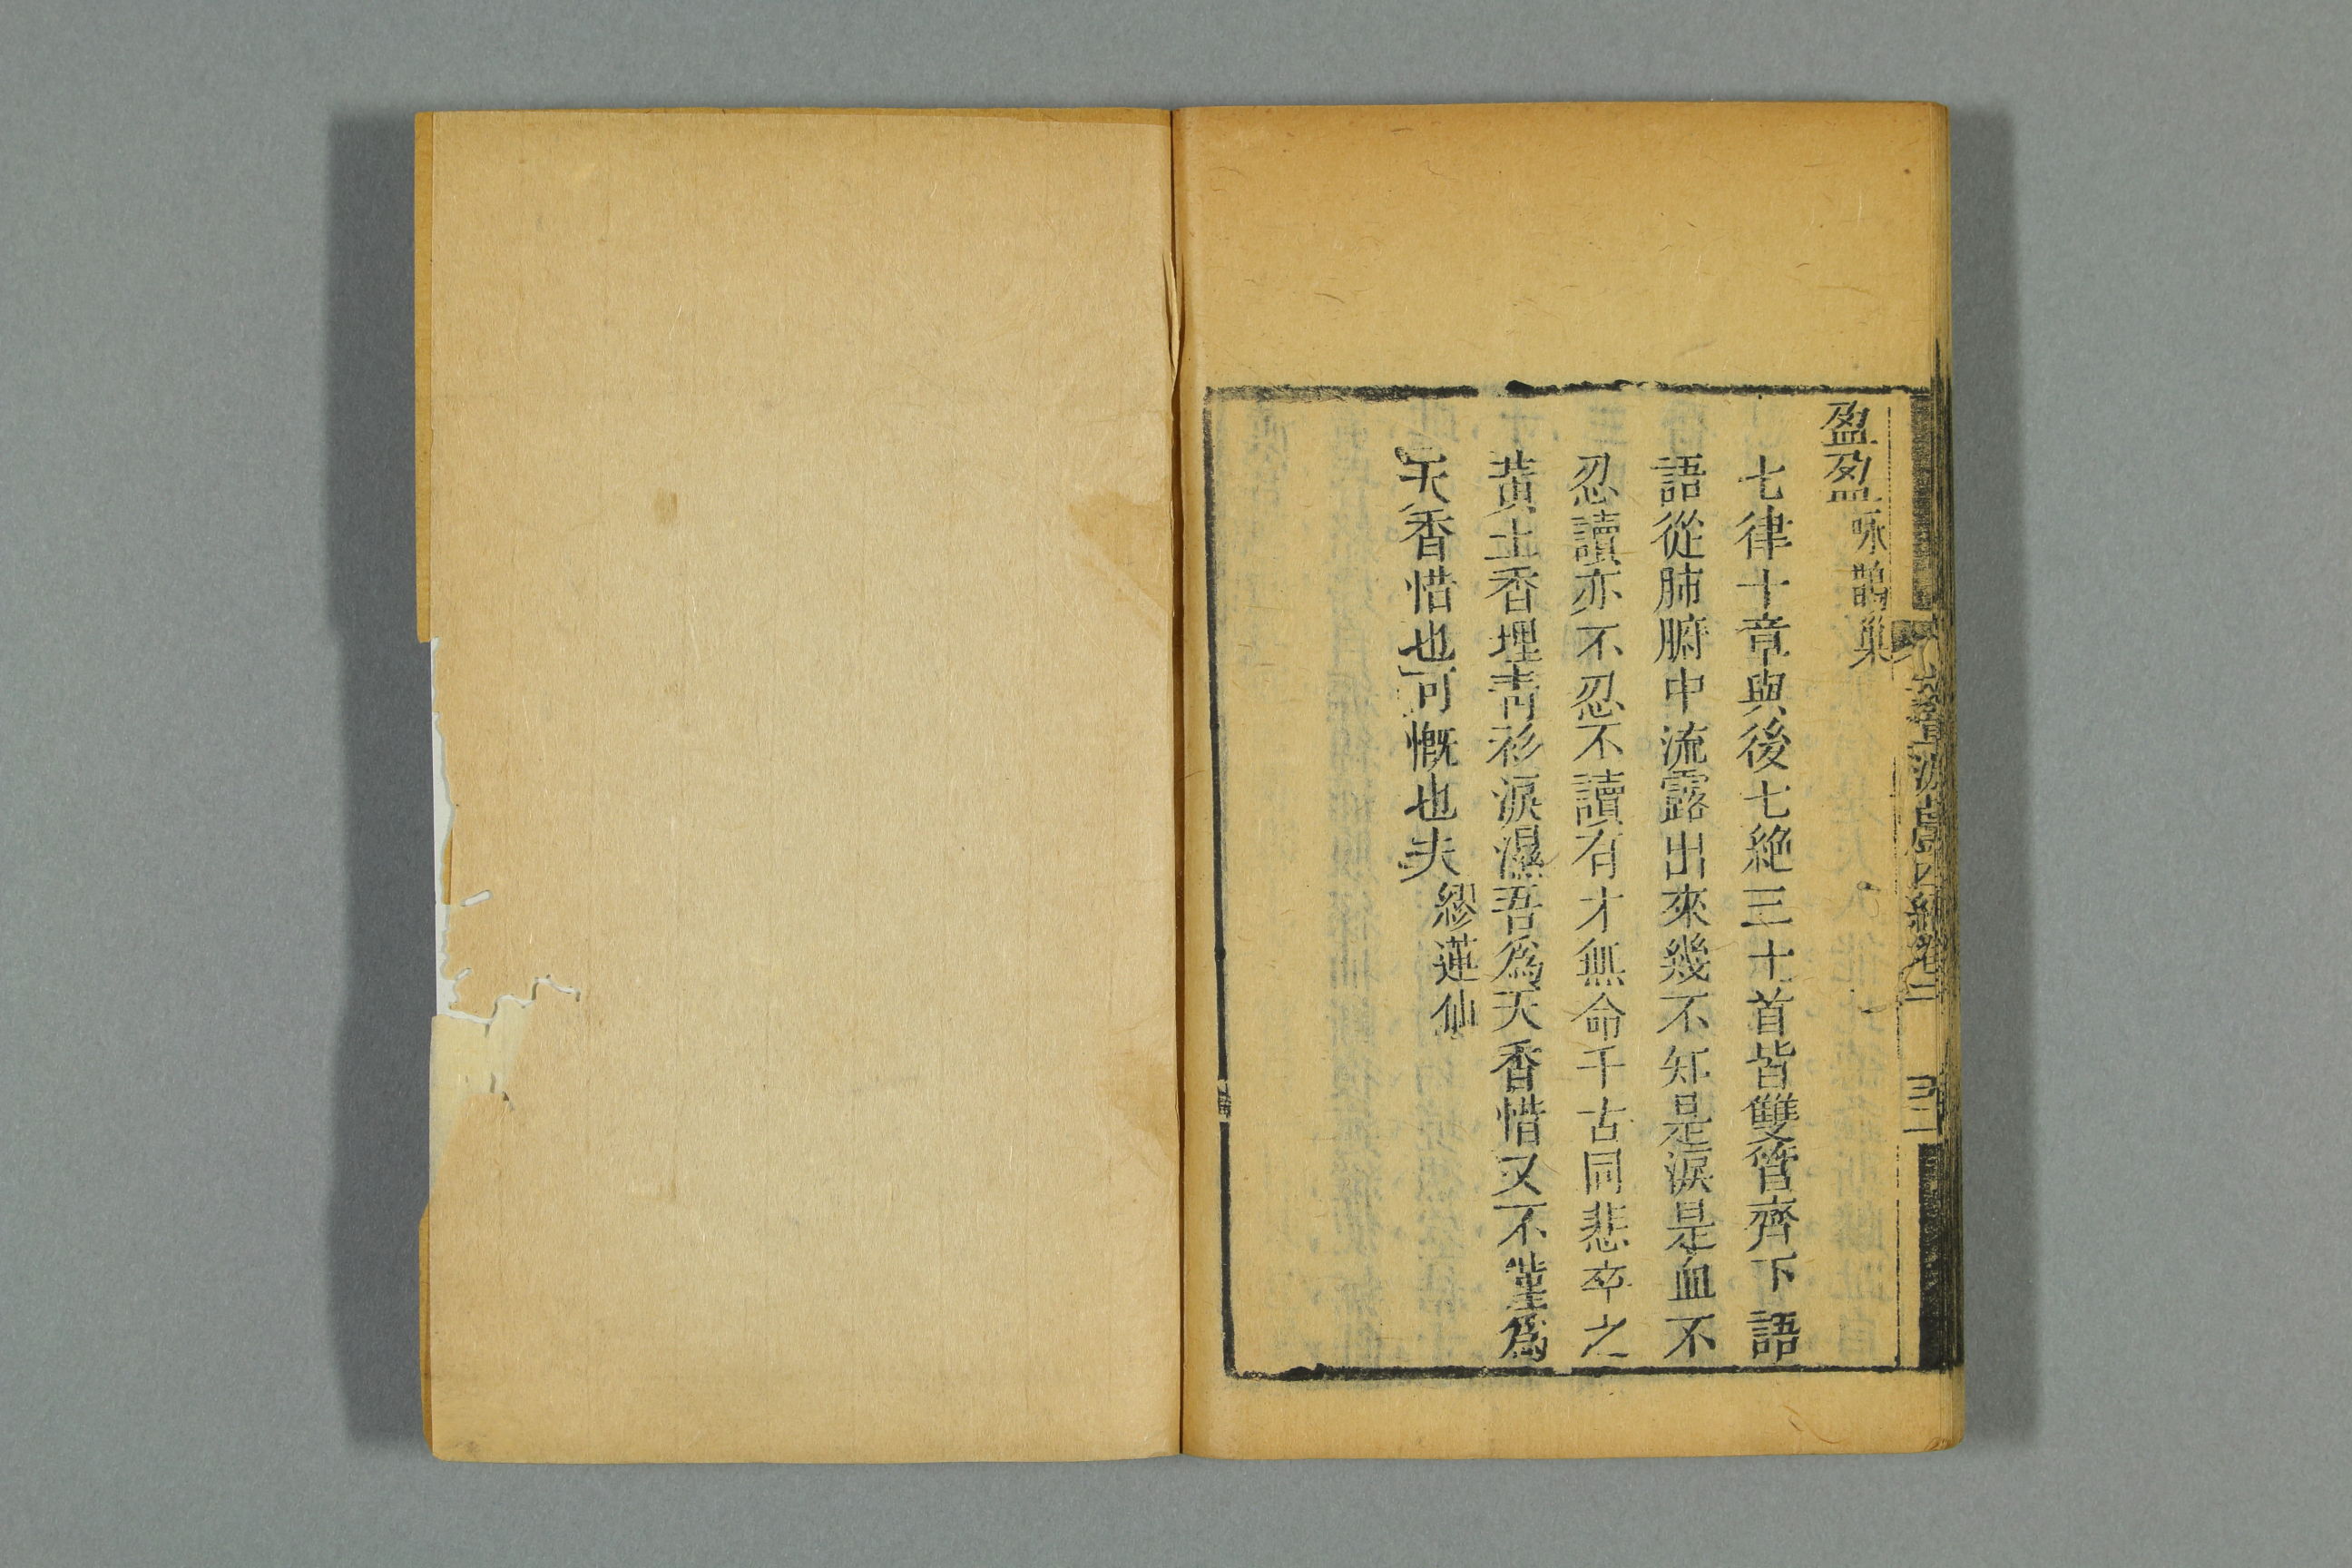 盈盈咏鵲巢
七律十章與後七絶三十首皆雙管齊下語
語從肺腑中流露出來幾不知是淚是血不
忍讀亦不忍不讀有才無命千古同悲卒之
黃土香埋靑衫淚濕吾為天香惜又不堇為
天香惜也可慨也夫繆蓮仙